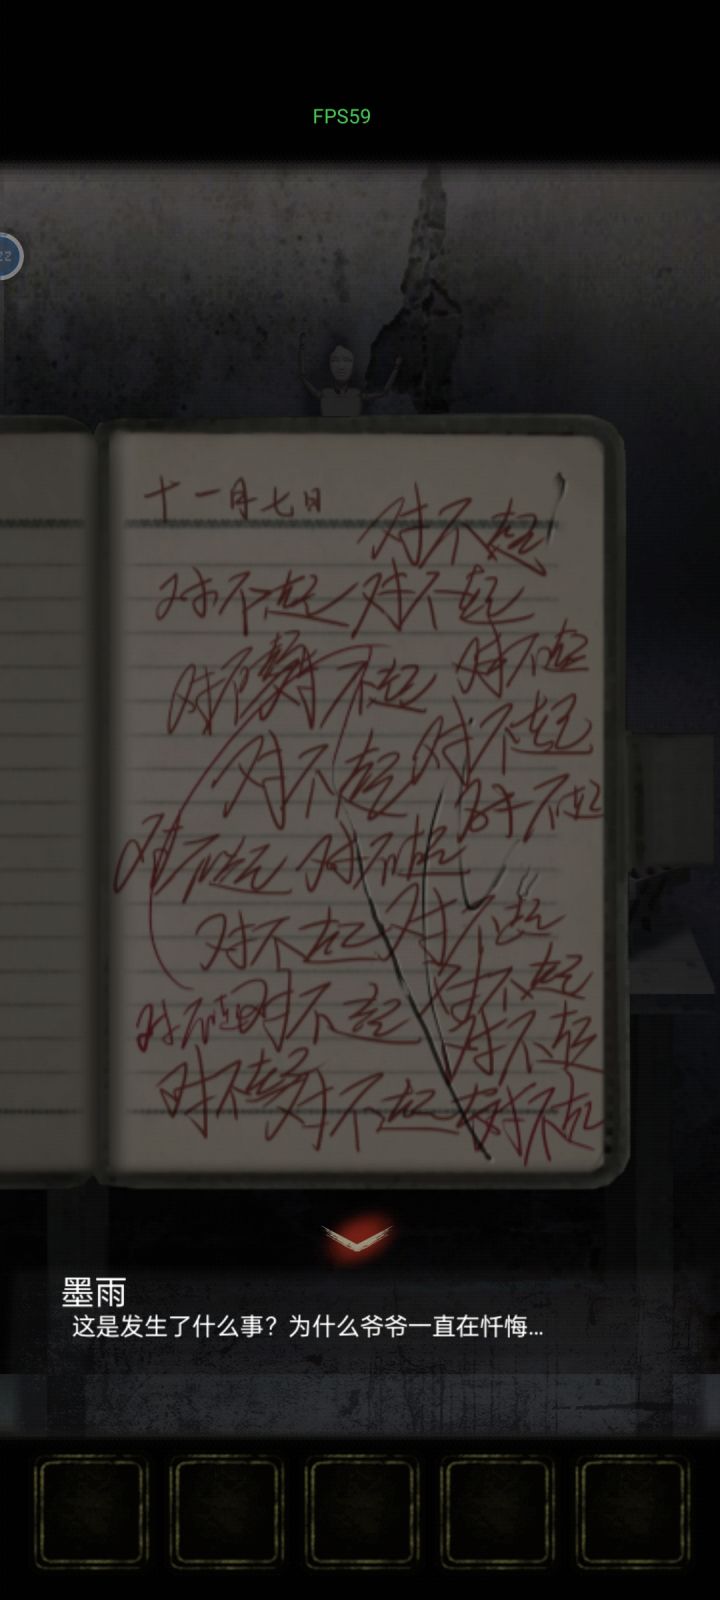 FPS59
十一月七日
对不起
对不起 对不起
对不起 对不起 对不起
对不起 对不起
对不起
对不起 对不起
对不起 对不起
对不起 对不起 对不起
对不起
对不起 对不起 对不起
墨雨
这是发生了什么事？为什么爷爷一直在忏悔...